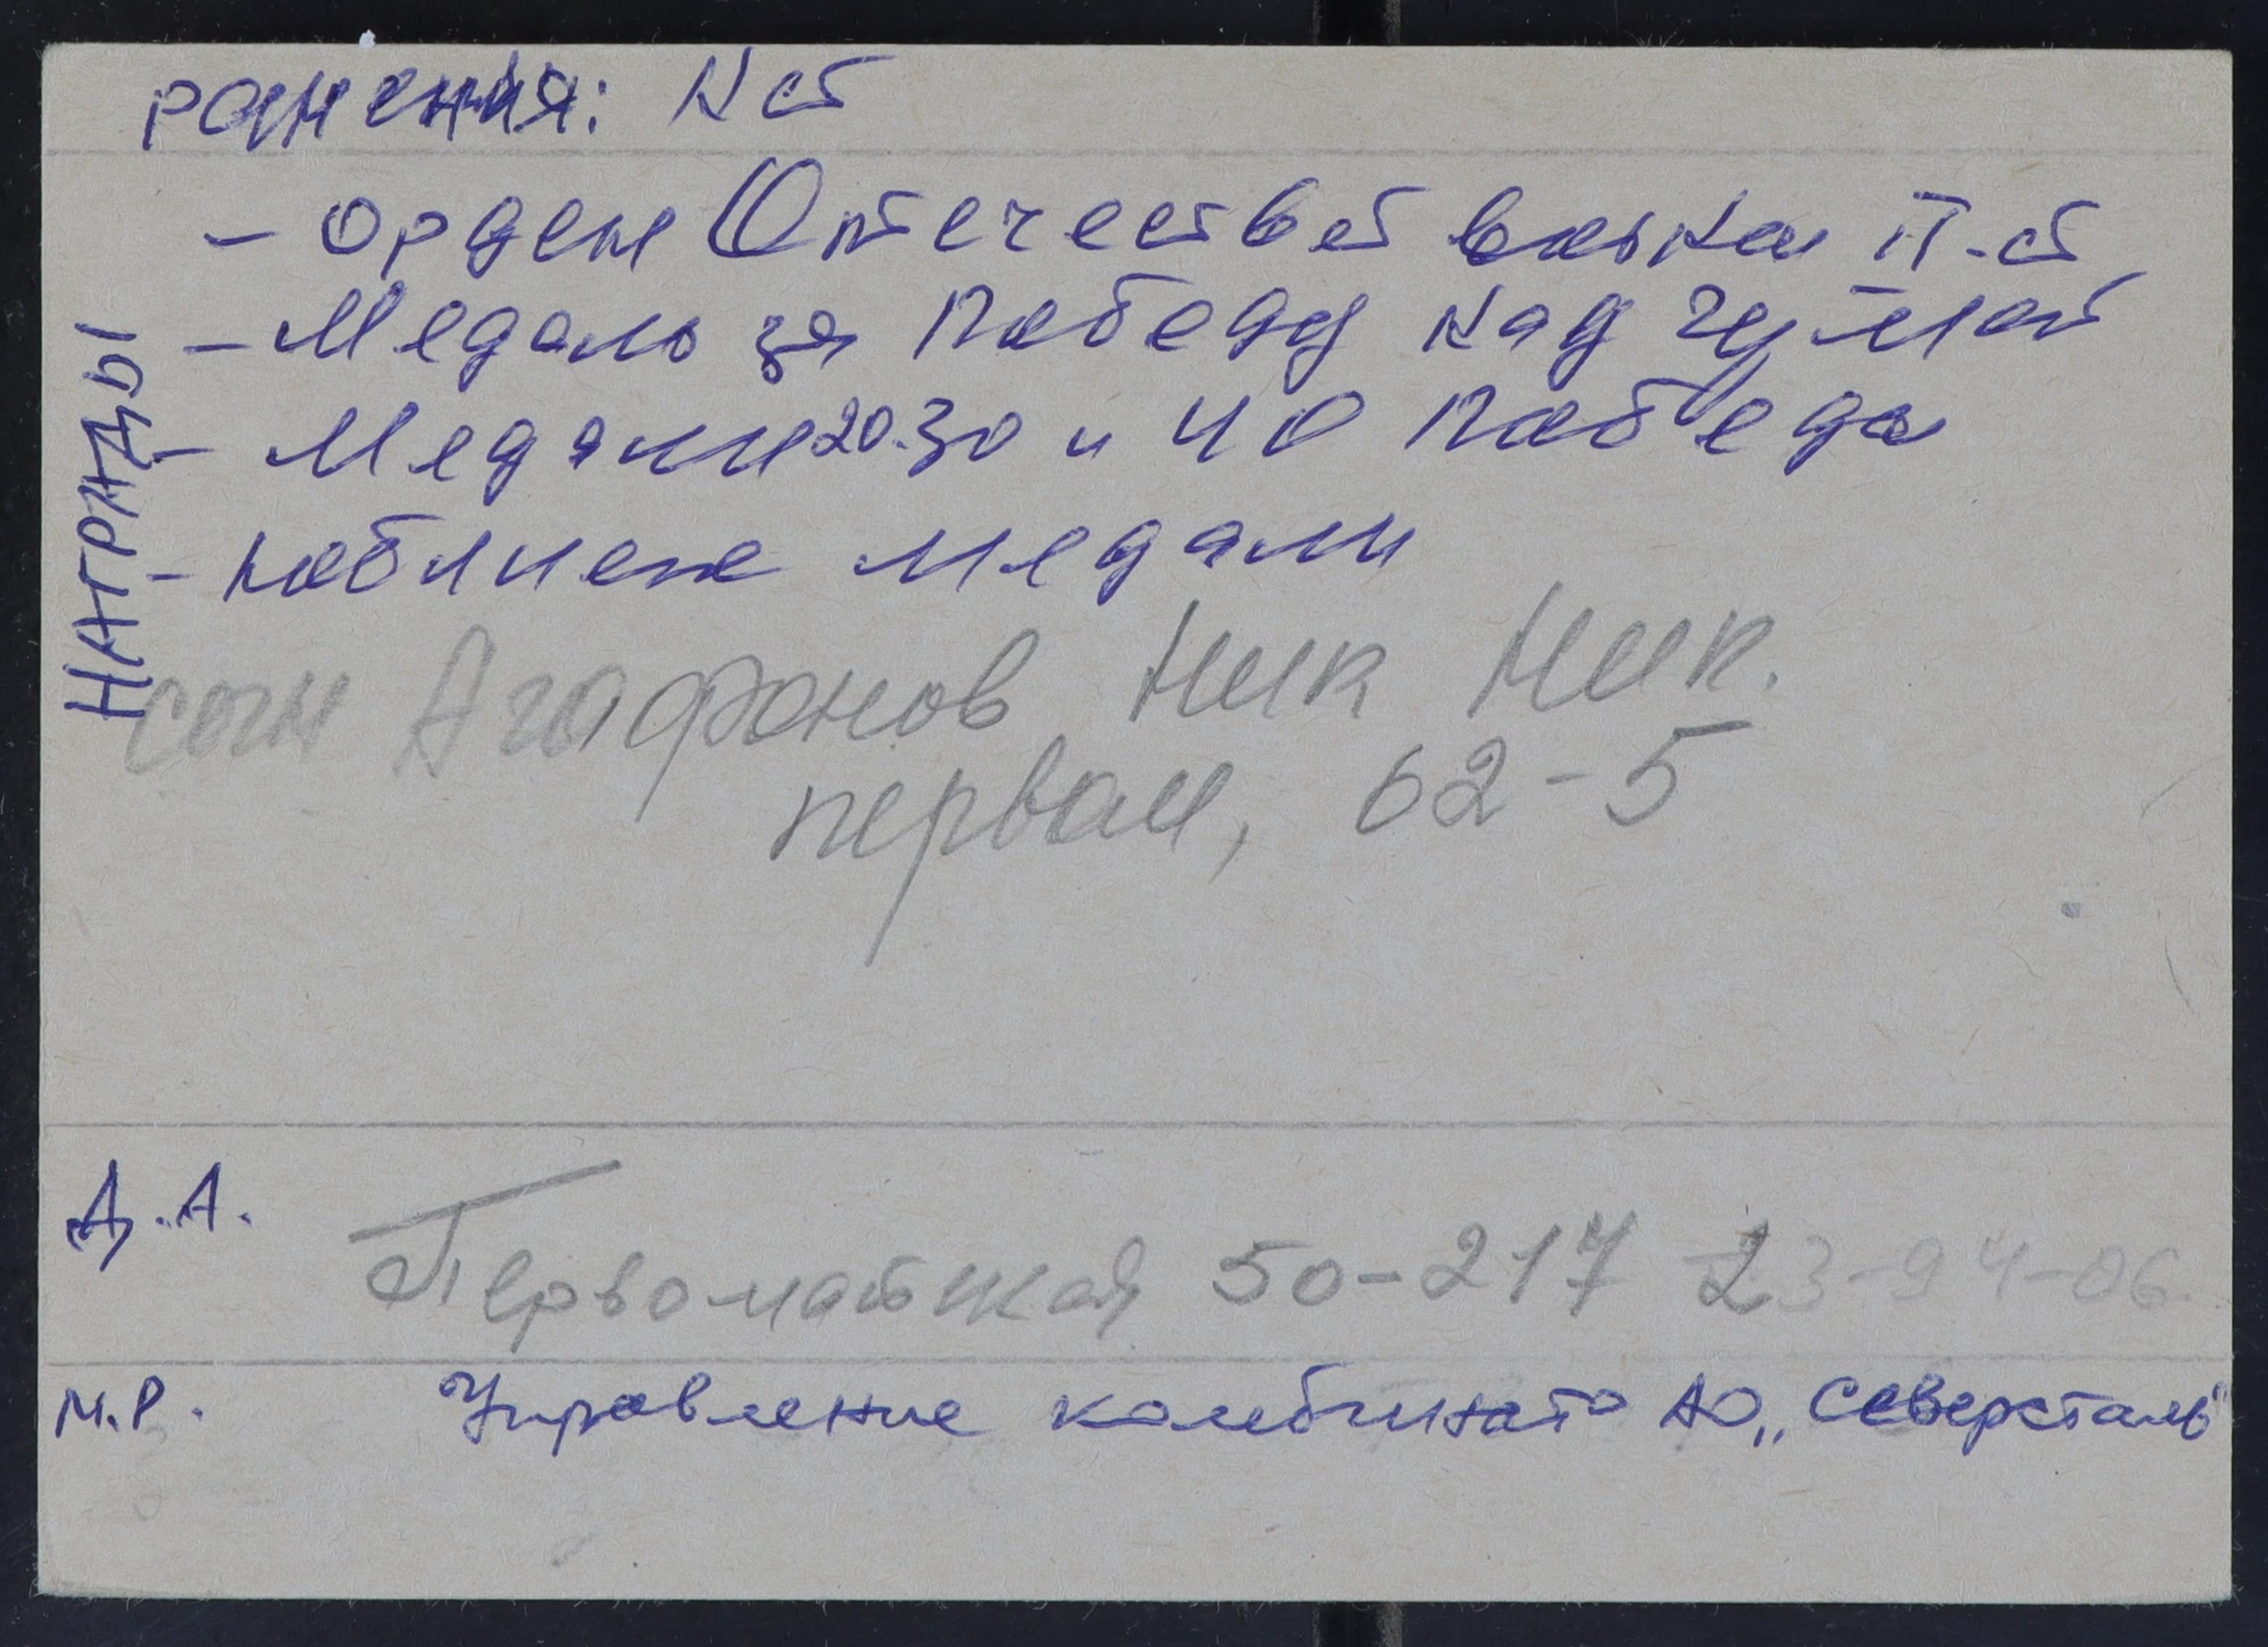 ранения: Нет
НАГРАДЫ
- орден Отечествет война II-ст
- Медаль за Победу над
- Медали 20.30 и 40 Победа
- медали
сын Агафонов Ник Ник.
первом, 62-5
Д.А.
Первомайская 50-217 23-94-06
М.Р. Управление комбината АО „Северсталь"